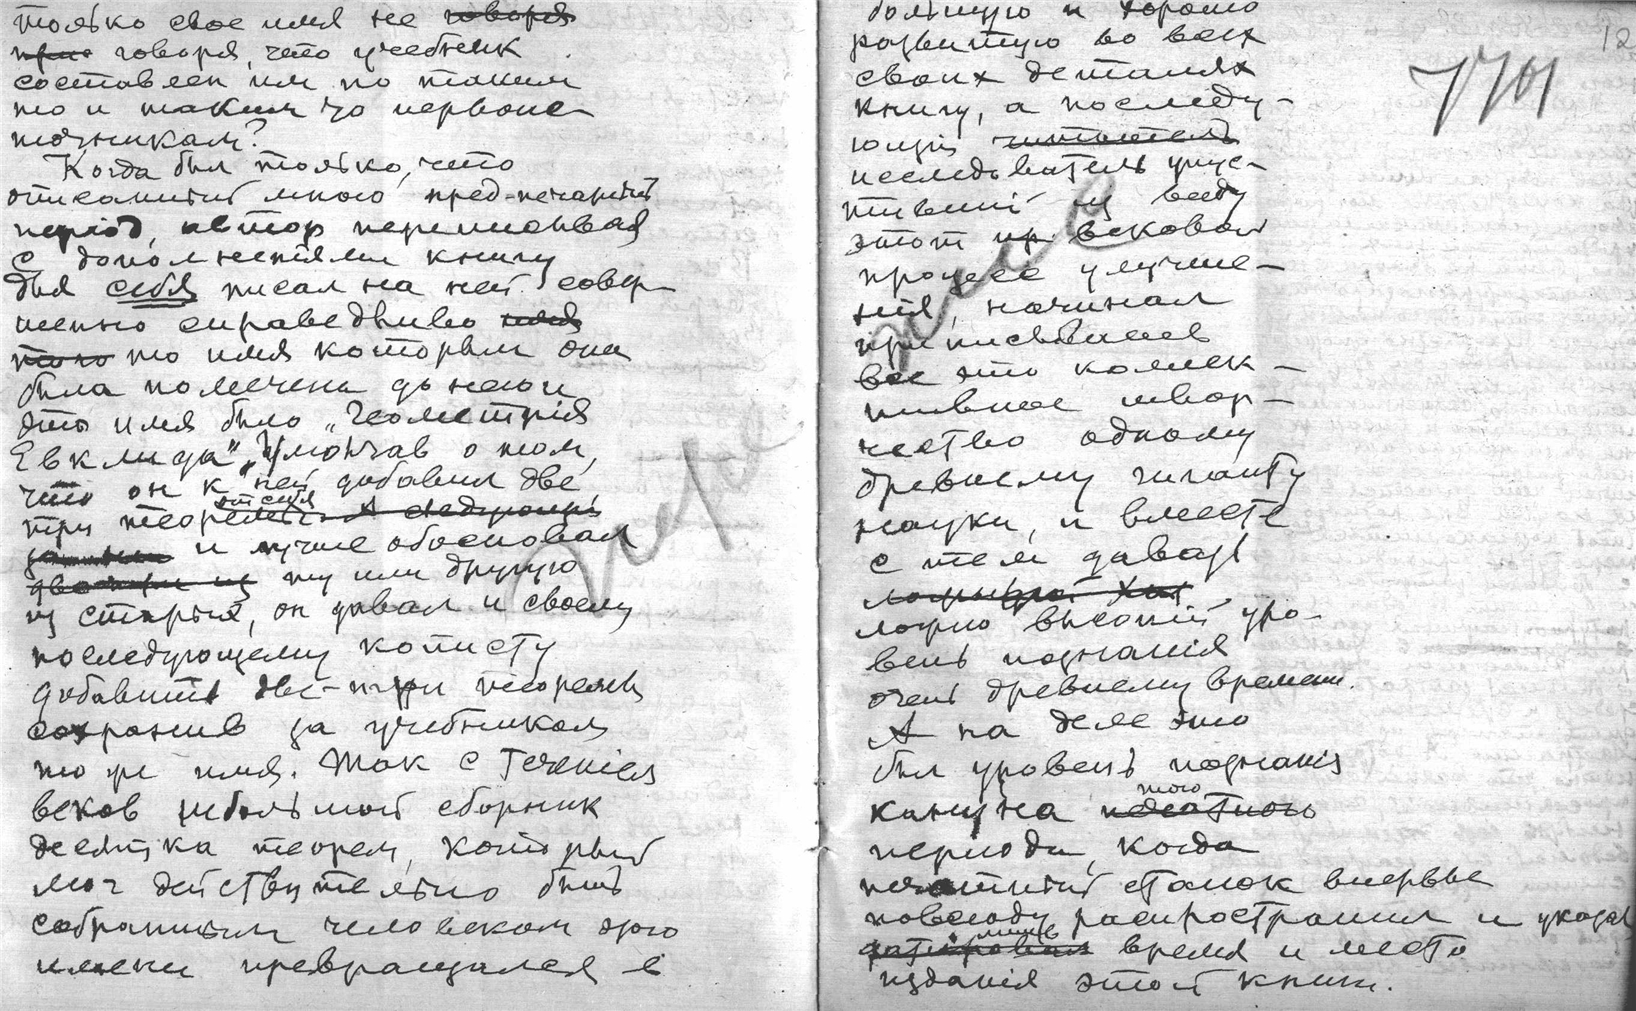 только свое имя не говоря
при говоря, что учебник
составлен им по таким
то и таким то первоис-
точникам?
Когда был только, что
описанный мною пред-печатный
период, автор переписывая
с дополнениями книгу
для себя писал на ней совер-
шенно справедливо имя
того то имя которым она
была помечена до него и
это имя было „Геометрія
Евклида“, Умолчав о том,
что он к ней добавил две
три теоремы от себя А следующий
и лучше обосновал
две три из ту или другую
из старых, он давал и своему
последующему кописту
добавить две-три теоремы
сохранив за учебником
то же имя. Так с теченіем
веков небольшой сборник
десятка теорем, который
мог действительно быть
собранным человеком этого
имени превращался в
большую и хорошо
развитую во всех
своих деталях
книгу, а последу-
ющій читатель
исследователь упус-
тивший из виду
этот пр вековой
процесс улучше-
нія, начинал
приписывать
все это коллек-
тивное твор-
чество одному
древнему гиганту
науки, и вместе
с тем давал
ложно высокій уро-
вень познанія
очень древнему времени.
А на деле это
был уровень познанія
кануна того печатного
періода, когда
печатный станок впервые
повсюду распространил и указал
датировал время и место
изданія этой книги.
12
1701